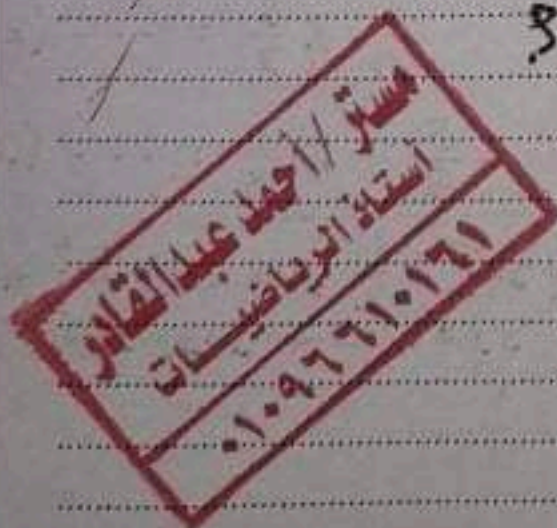 مستر / أحمد عبدالقادر
أستاذ الرياضيات
٠١٠٩٦٦١٠١٦١